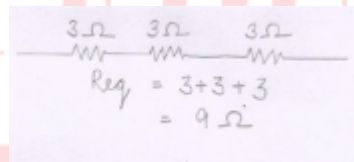 3Ω 3Ω 3Ω
Req = 3+3+3
= 9Ω